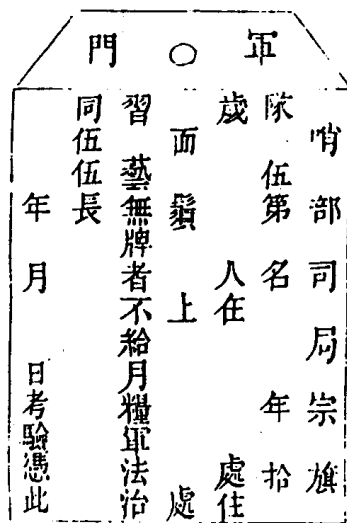 軍○門
哨部司局宗旗
隊 伍第 名 年 拾
歲 人在 處住
面 鬚 上 處
習 藝無牌者不給月糧軍法治
同伍伍長
年 月 日考驗憑此